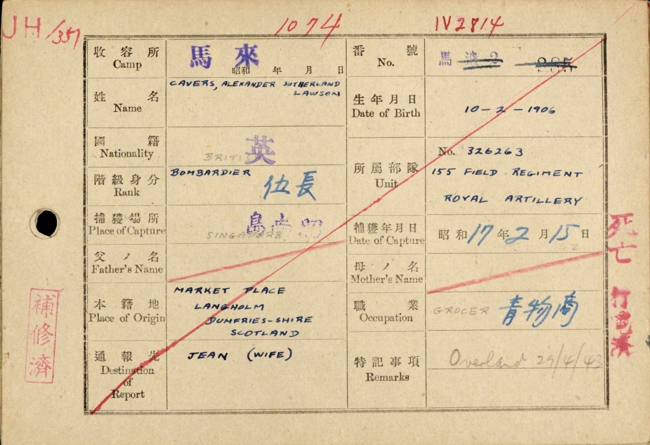 JH/351
1074
IV2814
收容所
Camp
馬來
昭和 年 月 日
番號
No.
姓名
Name
CAVERS, ALEXANDER SUTHERLAND
LAWSON
生年月日
Date of Birth
10-2-1906
國籍
Nationality
英
所屬部隊
Unit
No. 326263
155 FIELD REGIMENT
ROYAL ARTILLERY
階級身分
Rank
BOMBARDIER
伍長
捕獲場所
Place of Capture
SINGAPORE
昭南島
捕獲年月日
Date of Capture
昭和17年2月15日
父ノ名
Father's Name
母ノ名
Mother's Name
本籍地
Place of Origin
MARKET PLACE
LANGHOLM
DUMFRIES-SHIRE
SCOTLAND
職業
Occupation
GROCER
青物商
通報先
Destination
of
Report
JEAN (WIFE)
特記事項
Remarks
Overland 29/4/43
死亡
補修濟